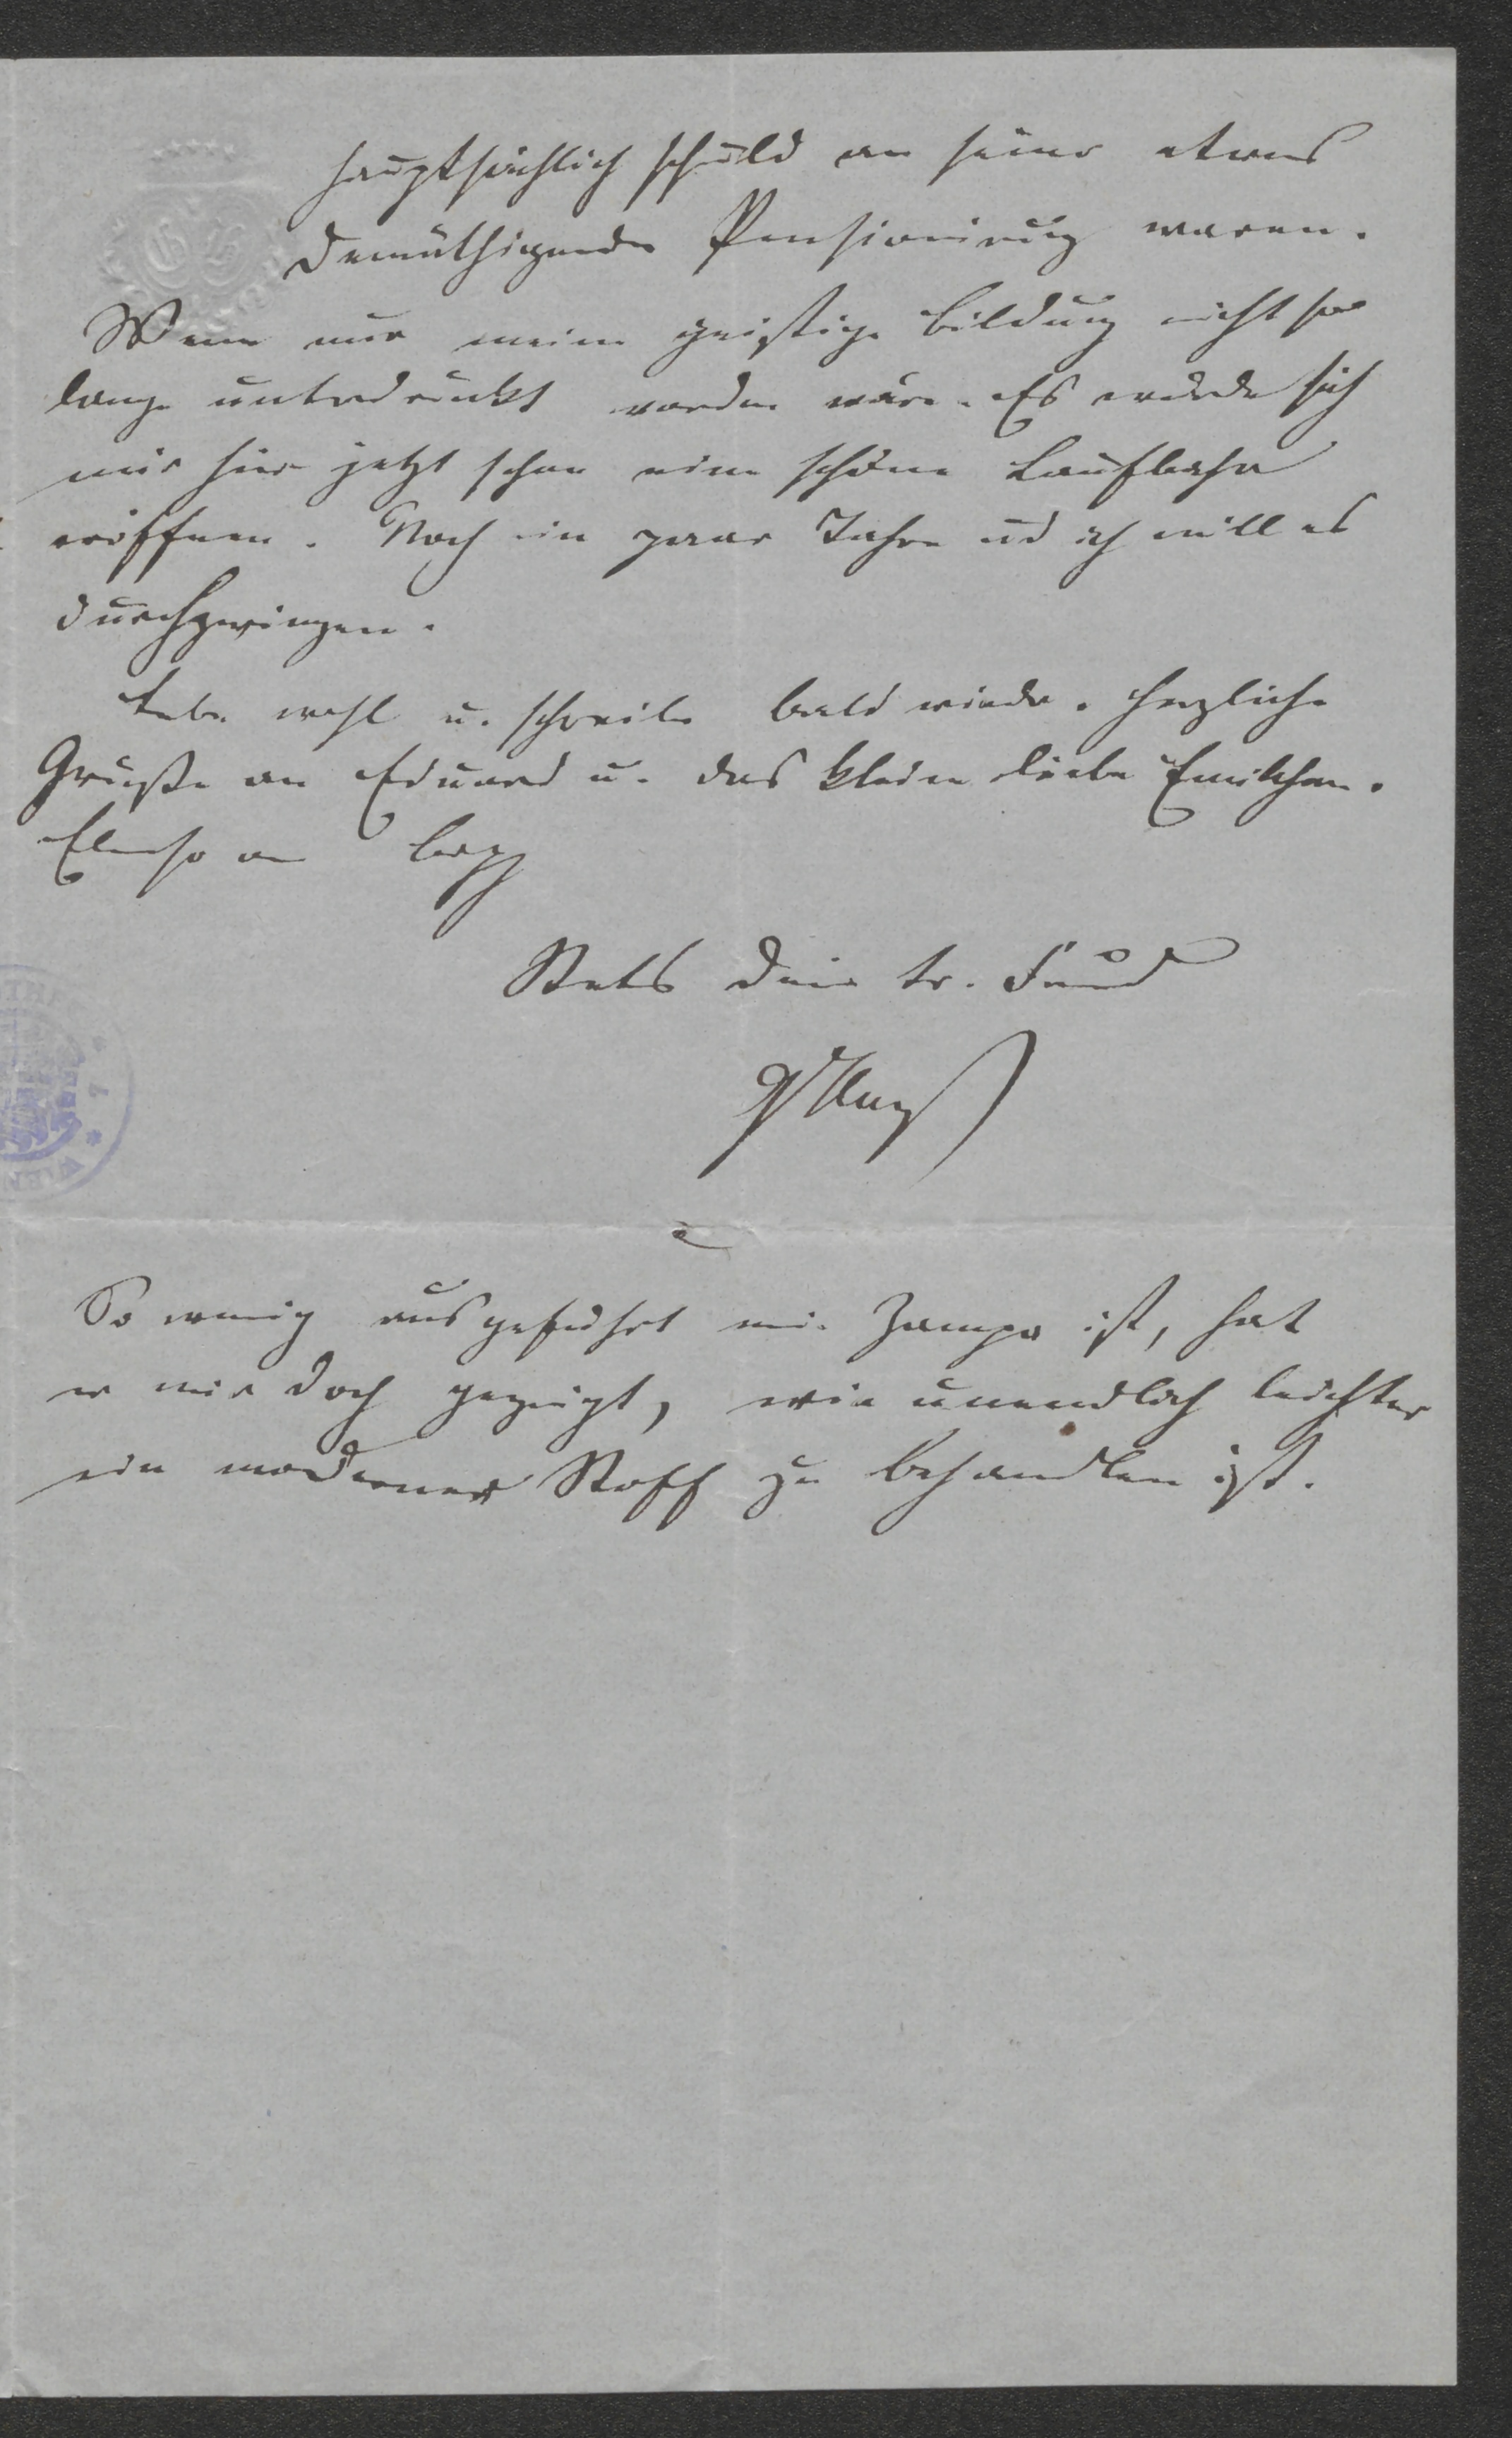 hauptsächlich schuld an seiner etwas
demüthigenden Pensionirung waren.
Wenn nur meine geistige Bildung nicht so
lange unterdrückt worden wäre. Es würde sich
mir hier jetzt schon eine schöne Laufbahn
eröffnen. Noch ein paar Jahre und ich will es
durchzwingen.
Lebe wohl u. schreibe bald wieder. Herzliche
Grüße an Eduard u. das kleine liebe Emilchen.
Ebenso an
Stets Dein tr. Freund
So wenig ausgeführt mein Zampa ist, hat
er mir doch gezeigt, wie unendlich leichter
ein moderner Stoff zu behandlen ist.
WIEN